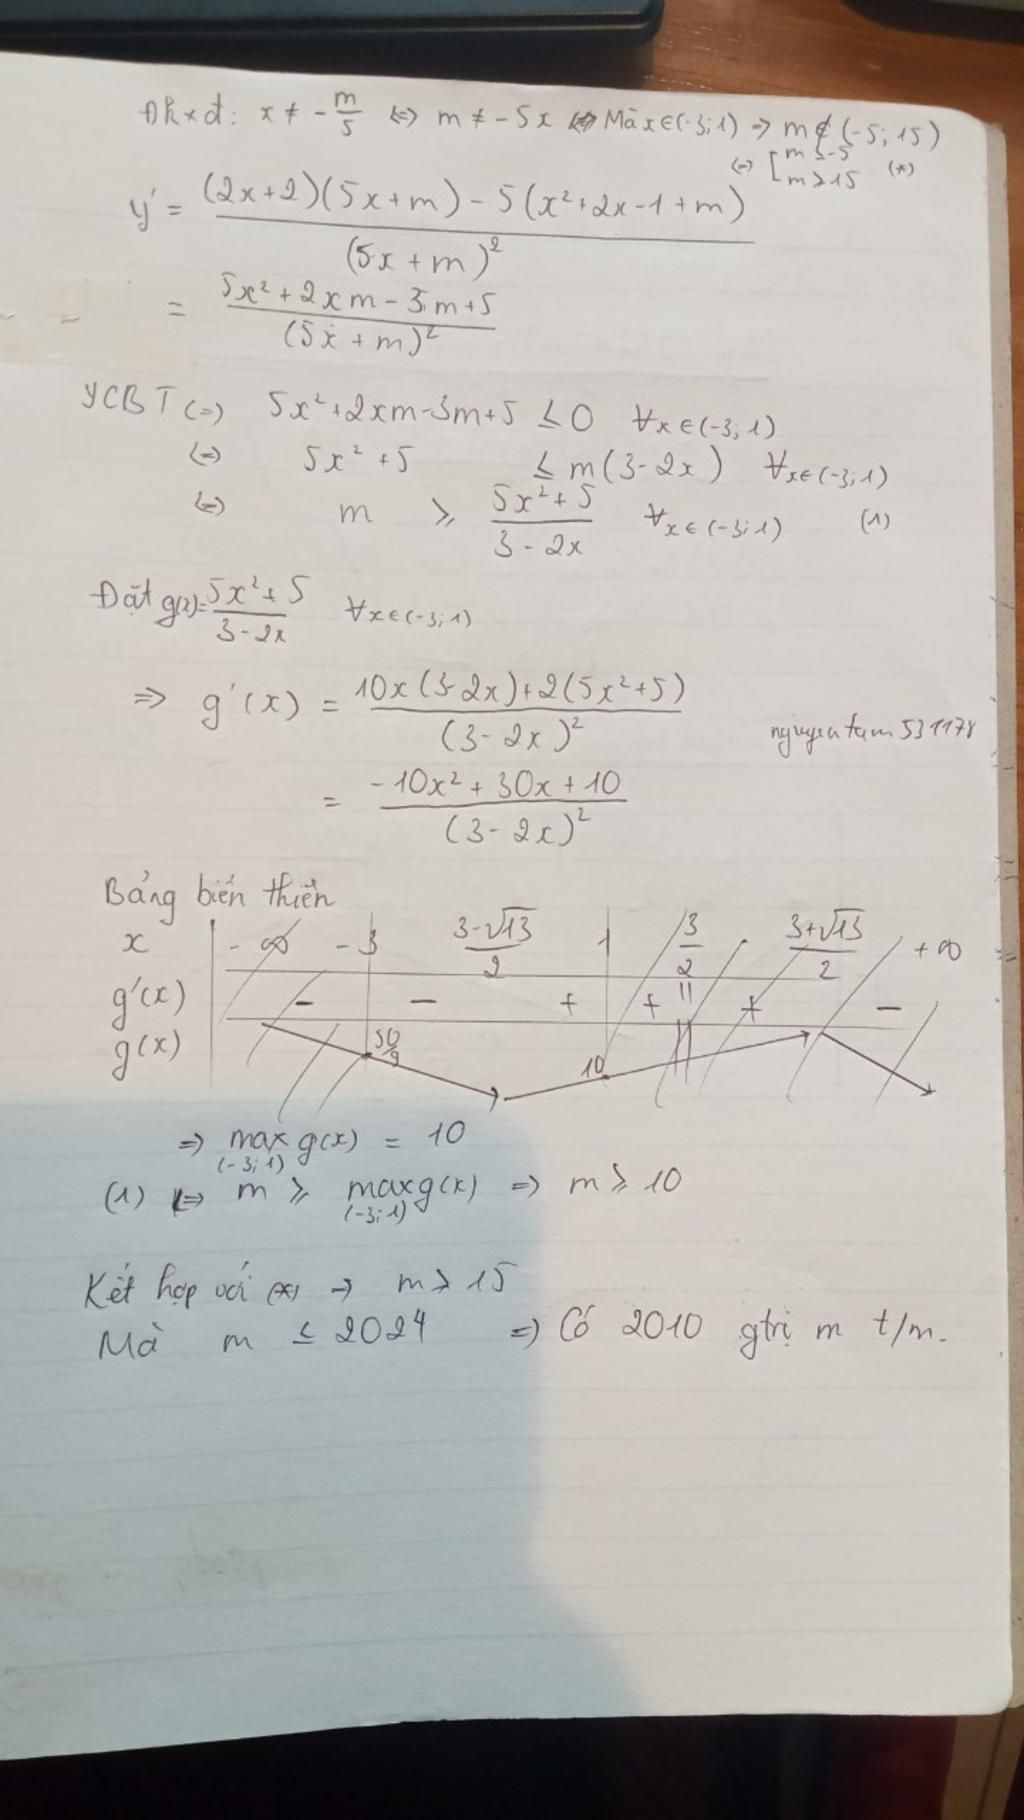 Đkxđ: x ≠ -m/5 ⇔ m ≠ -5x Mà x∈(-3;1) ⇒ m ∉ (-5; 15)
⇔ [m ≤ -5
m ≥ 15 (*)
y' = ((2x+2)(5x+m) - 5(x²+2x-1+m))/(5x+m)²
= (5x²+2xm-3m+5)/(5x+m)²
YCBT ⇔ 5x²+2xm-3m+5 ≤ 0 ∀x∈(-3;1)
⇔ 5x²+5 ≤ m(3-2x) ∀x∈(-3;1)
⇔ m ≥ (5x²+5)/(3-2x) ∀x∈(-3;1) (1)
Đặt g(x)=(5x²+5)/(3-2x) ∀x∈(-3;1)
⇒ g'(x) = (10x(3-2x)+2(5x²+5))/(3-2x)²
nguyentam531178
= (-10x²+30x+10)/(3-2x)²
Bảng biến thiên
x -∞ -3 (3-√13)/2 1 3/2 (3+√13)/2 +∞
g'(x) - - + + || + -
g(x) 50/9 10
⇒ max g(x) = 10
(-3;1)
(1) ⇔ m ≥ max g(x) ⇒ m ≥ 10
(-3;1)
Kết hợp với (*) ⇒ m ≥ 15
Mà m ≤ 2024 ⇒ Có 2010 gtrị m t/m.